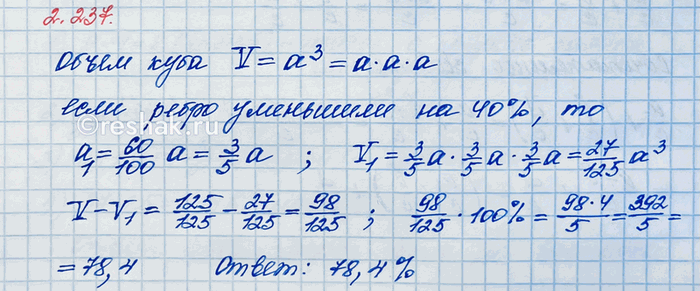 2.237.
Объем куба V = a³ = a·a·a
если ребро уменьшили на 40%, то
©reshak.ru
a₁ = 60/100 a = 3/5 a ; V₁ = 3/5 a · 3/5 a · 3/5 a = 27/125 a³
V - V₁ = 125/125 - 27/125 = 98/125 ; 98/125 · 100% = 98·4/5 = 392/5 =
= 78,4 Ответ: 78,4%